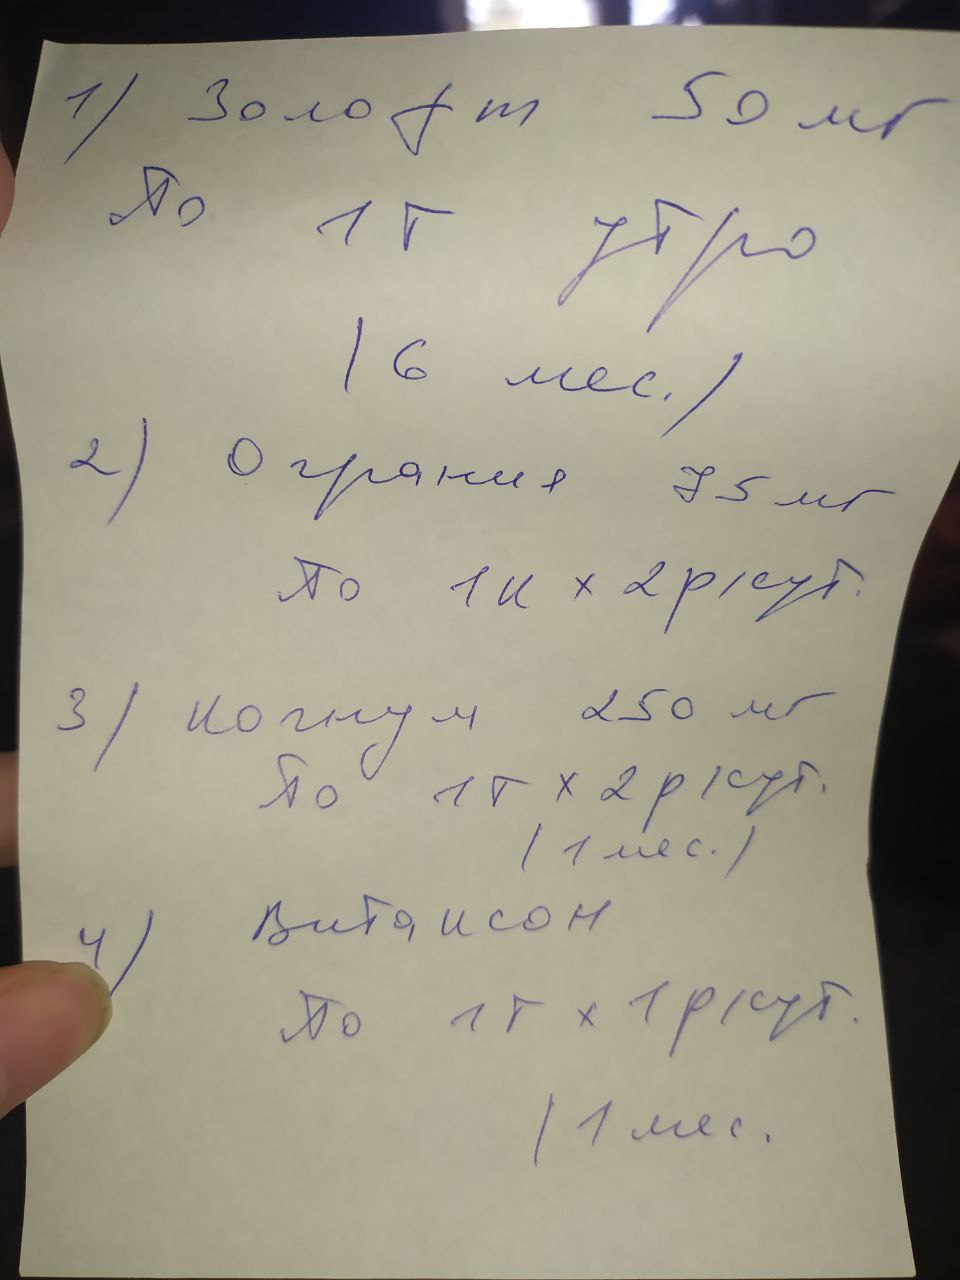 1) Золофт 50 мг
По 1т утро
(6 мес.)
2)Ограния 75 мг
По 1к х 2р/сут.
3) Когнум 250 мг
По 1т х 2р/сут.
(1 мес.)
4) Витаксон
По 1т х 1р/сут.
(1 мес.